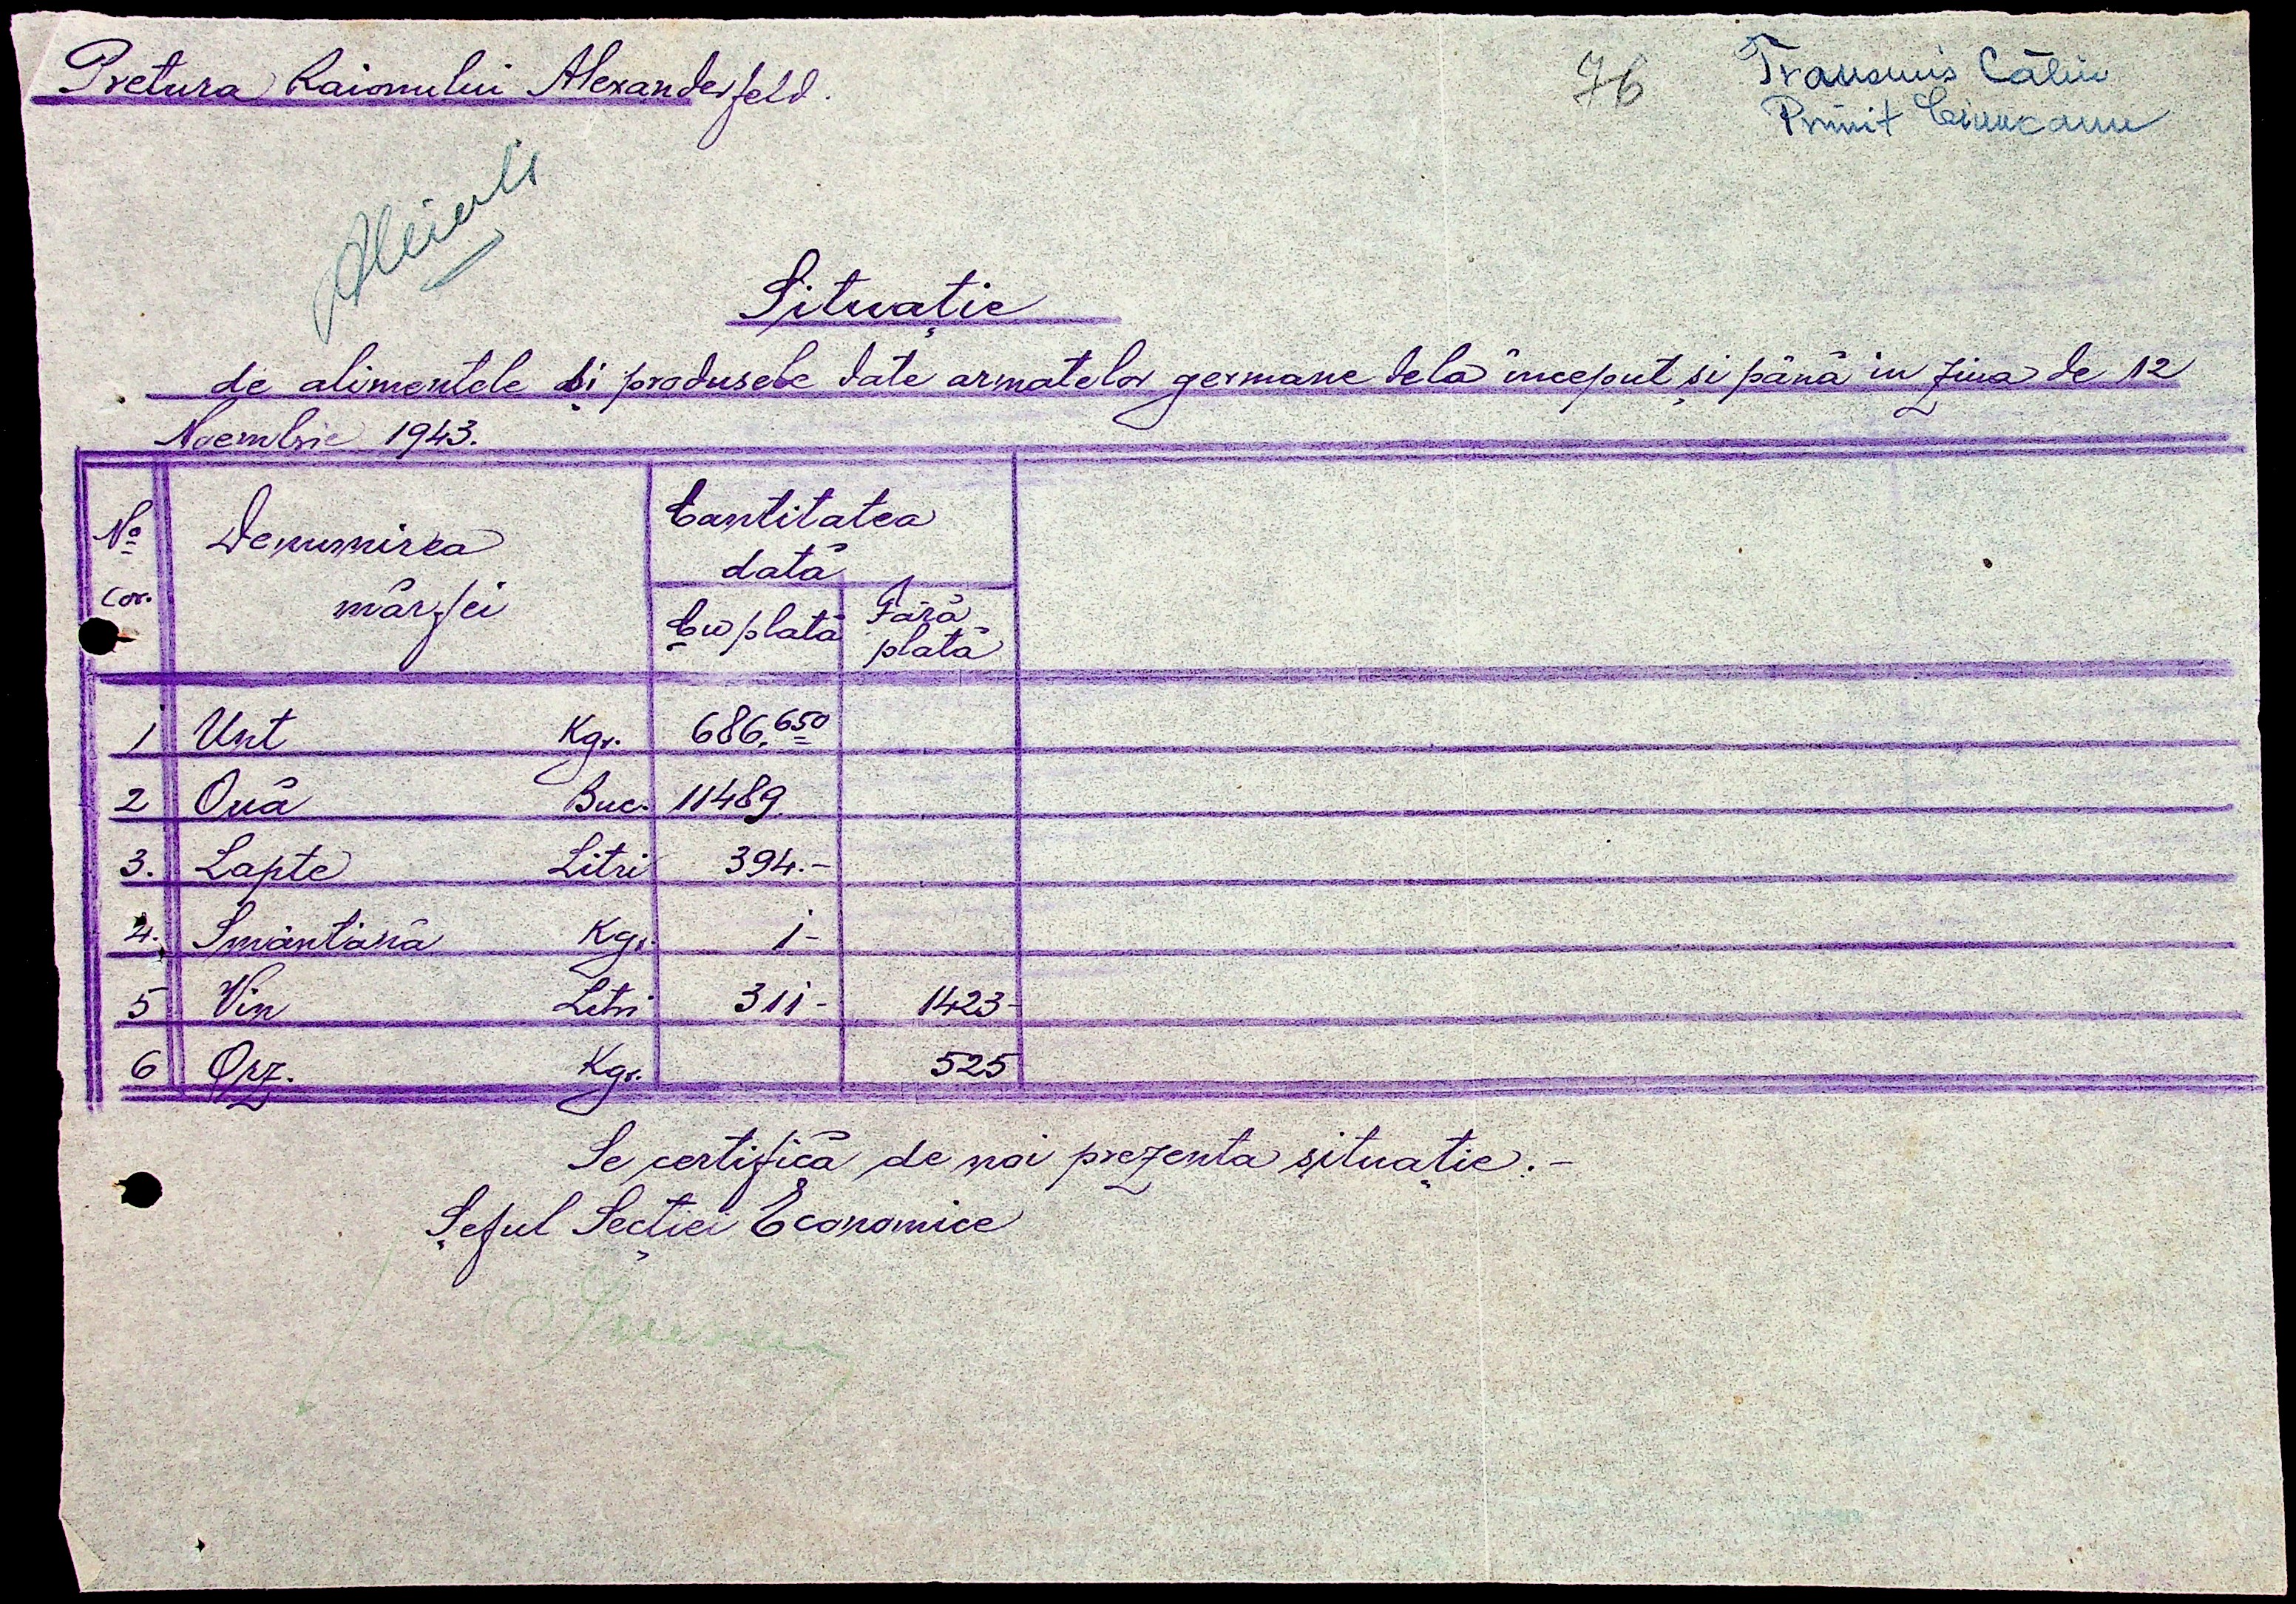 Pretura Raionului Alexanderfeld.
76
Transmis Călin
Primit
Situație
de alimentele și produsele date armatelor germane dela început și până in ziua de 12
Noembrie 1943.
No cor. Denumirea mărfei Cantitatea dată
Cu plată Fără plată
1 Unt Kgr. 686.650
2 Ouă Buc. 11489.
3. Lapte Litri 394.-
4. Smântână Kgr. 1-
5 Vin Litri 311- 1423-
6 Orz. Kgr. 525
Se certifică de noi prezenta situație.-
Șeful Secției Economice